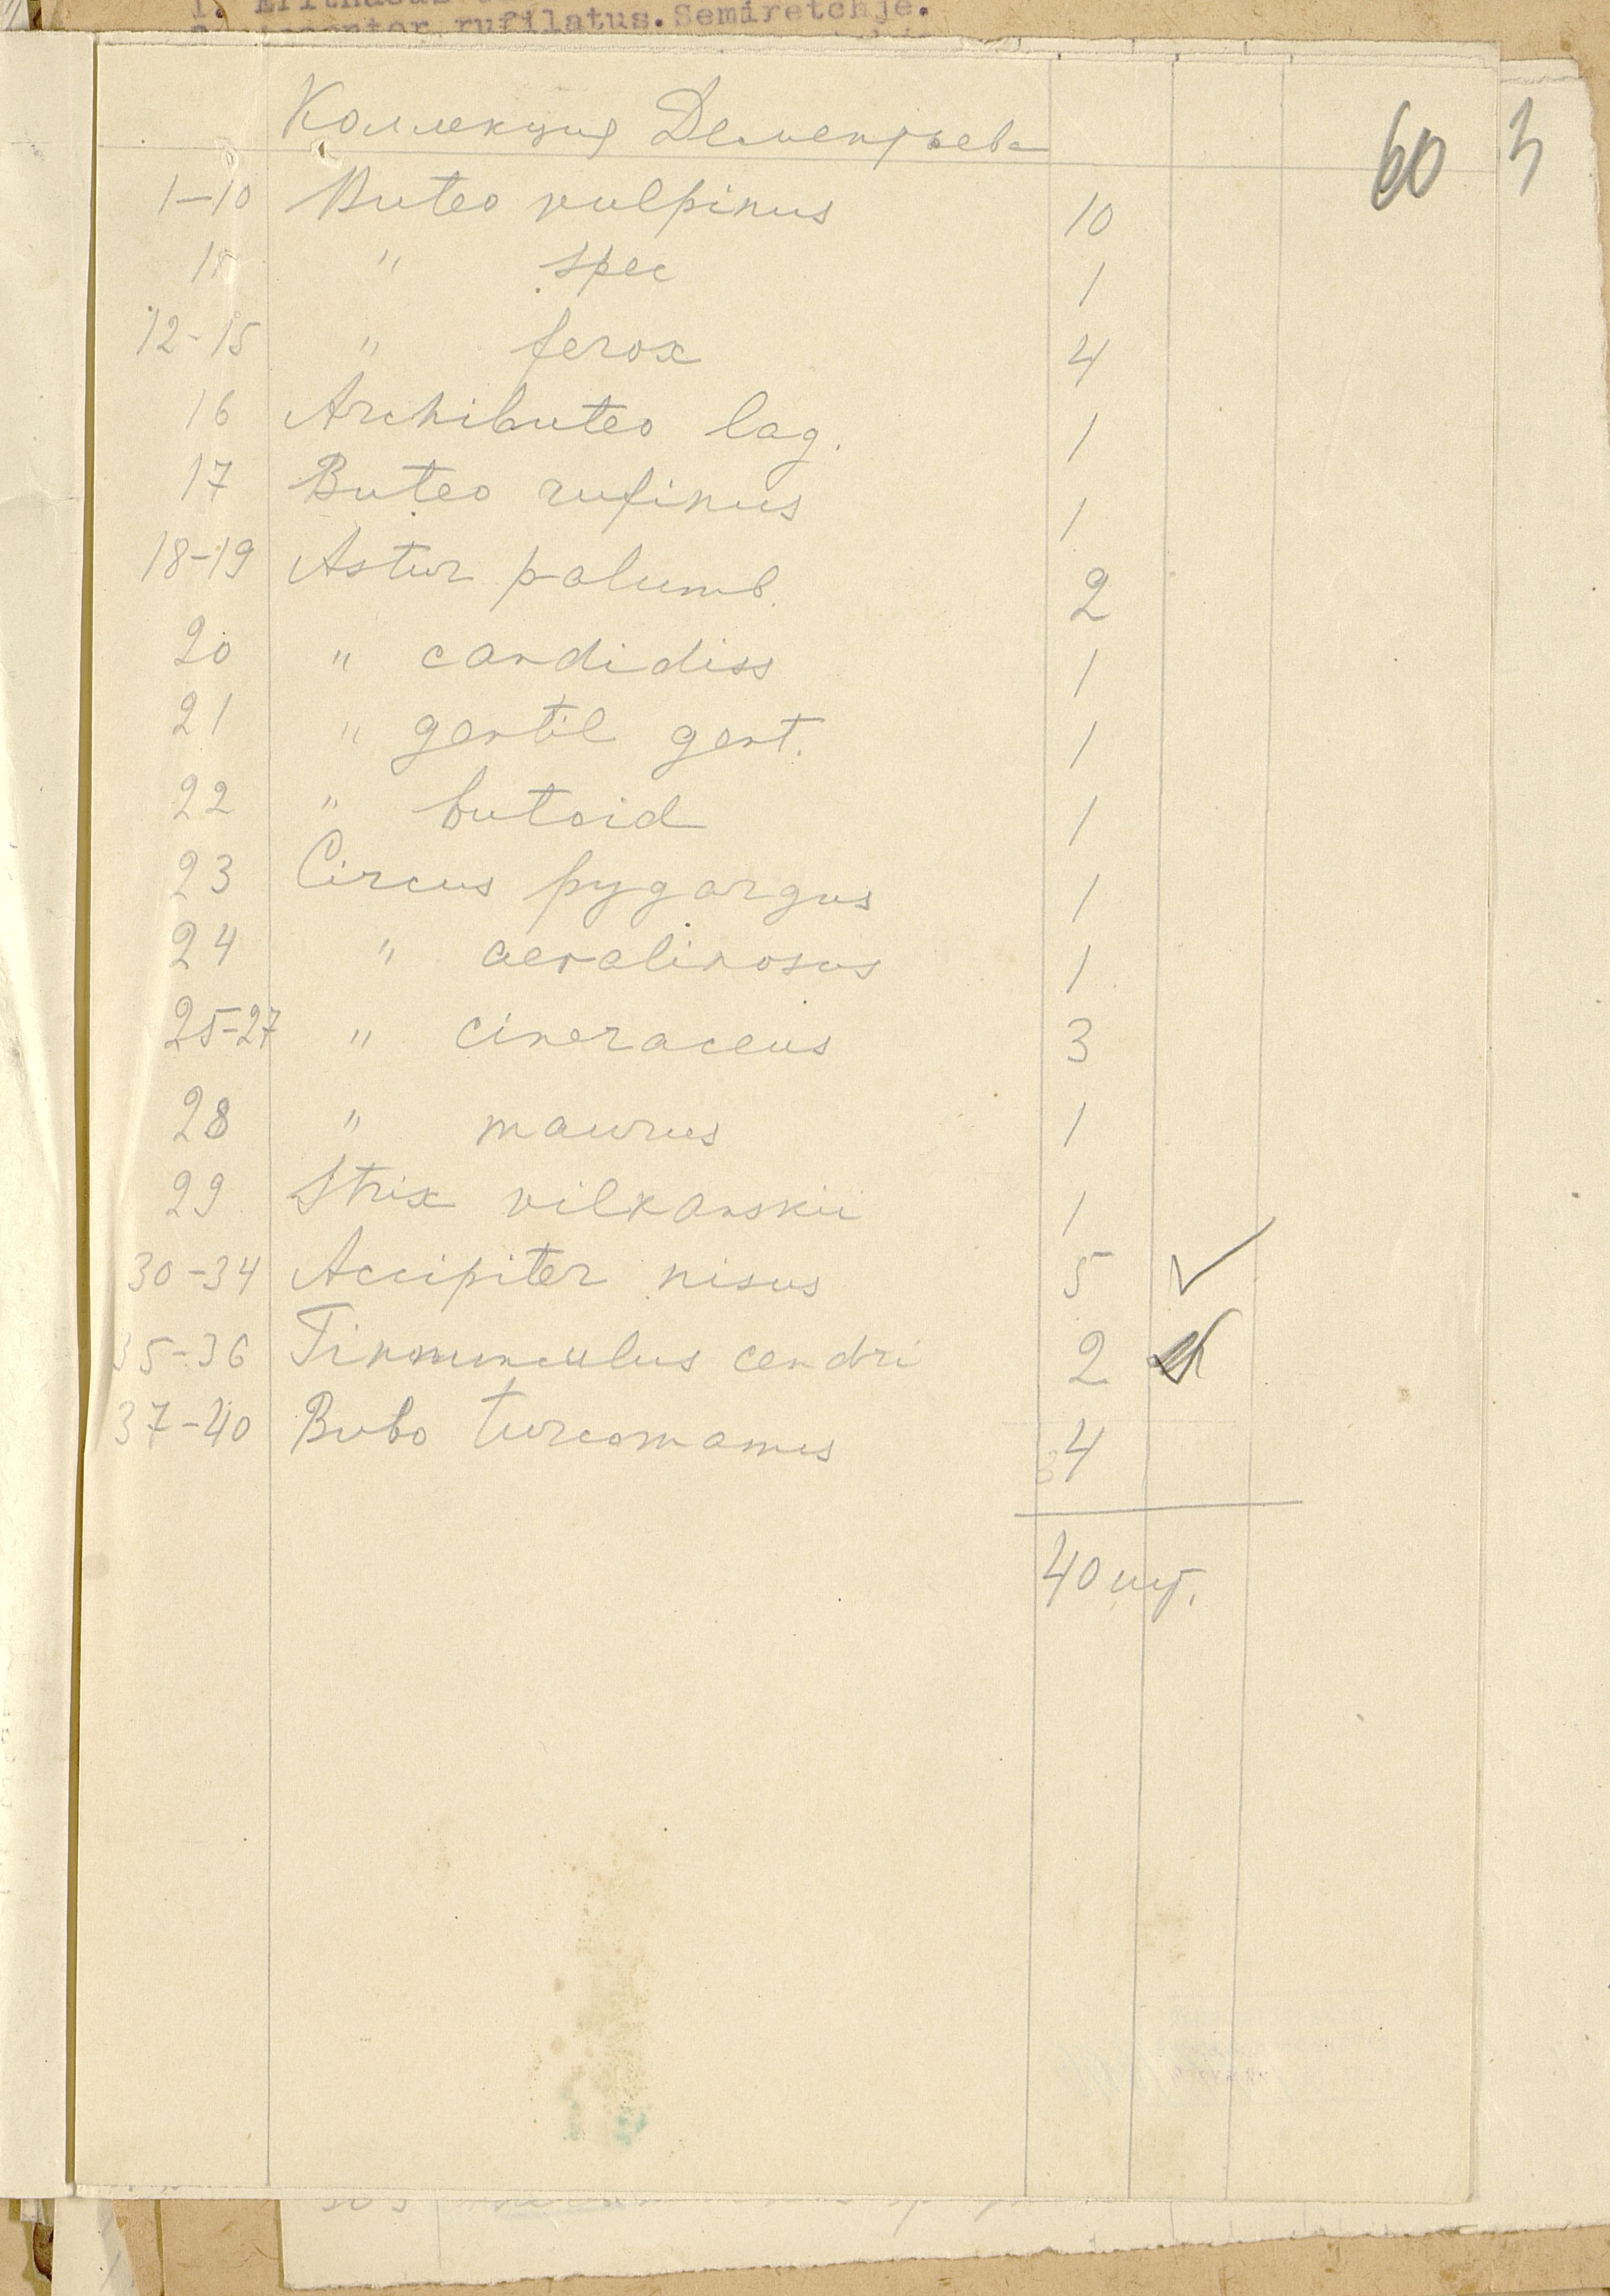 rufilatus. Semiretchje.
Коллекция Дементьева
60
1-10 Buteo vulpinus 10
11 " spec 1
12-15 " ferox 4
16 Archibuteo lag. 1
17 Buteo rufinus 1
18-19 Astur palumb. 2
20 " candidiss 1
21 " gentil gent. 1
22 " butoid 1
23 Circus pygargus 1
24 " aeralinosus 1
25-27 " cineraceus 3
28 " maurus 1
29 Strix vilkonskii 1
30-34 Accipiter nisus 5 ✓
35-36 Tinnunculus cendri 2
37-40 Bubo turcomanus 4
40 шт.